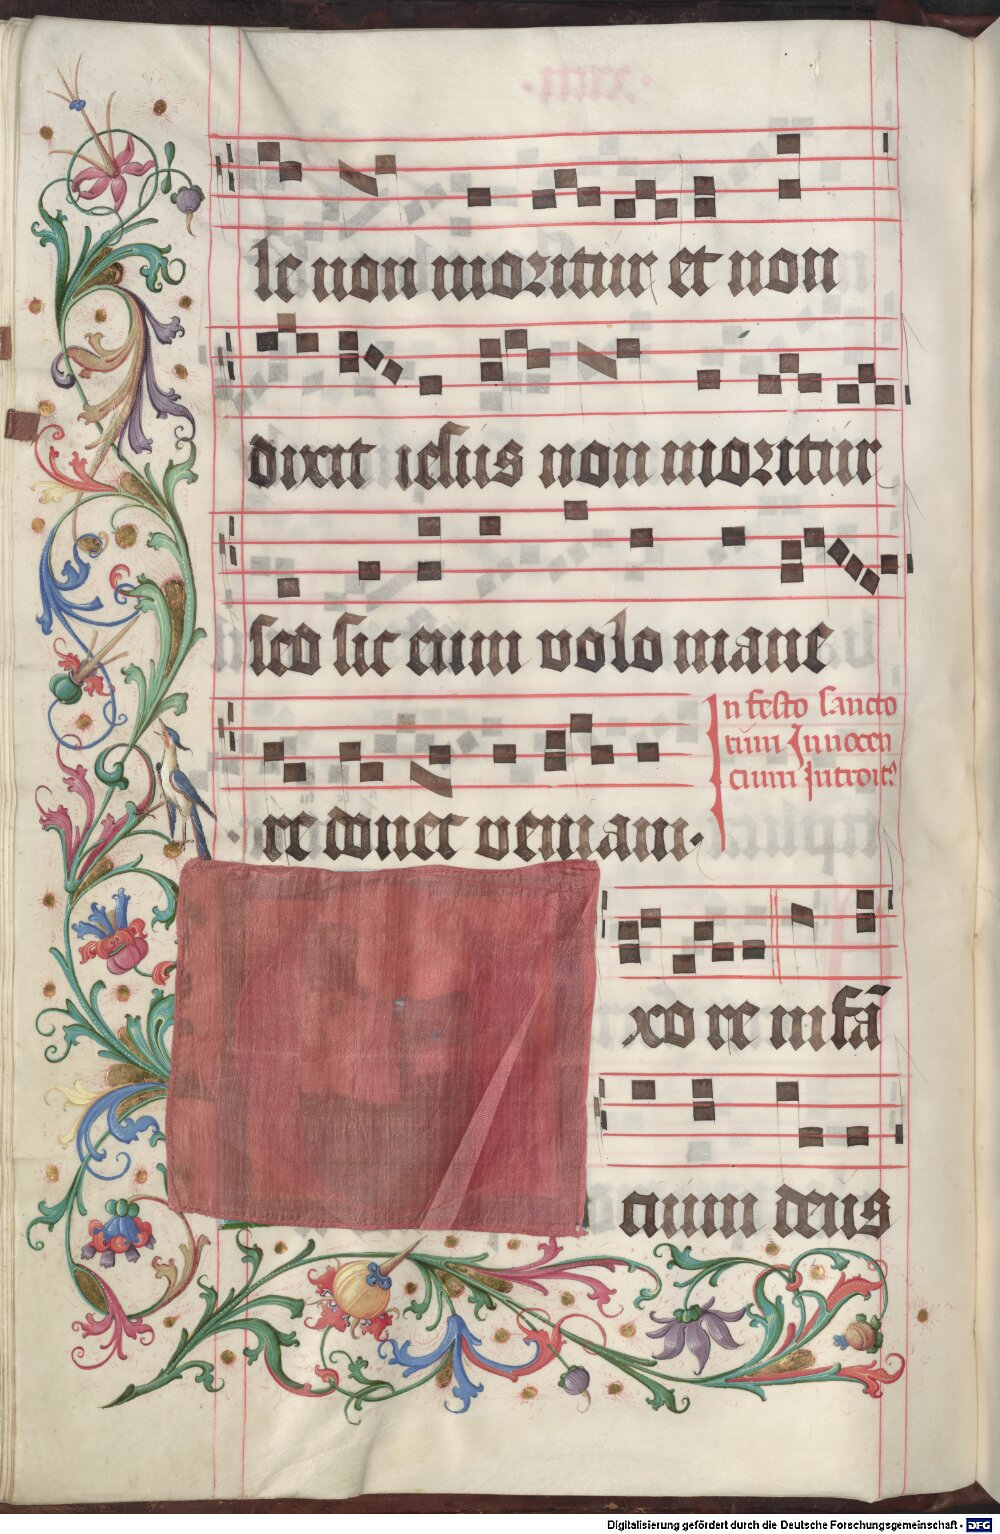 le non moritur et non
dixit iesus non moritur
sed sic eum volo mane
In festo sancto
rum Innocen
cium Introit9
re donec veniam.
xo re infā
cium deus
Digitalisierung gefördert durch die Deutsche Forschungsgemeinschaft - DFG